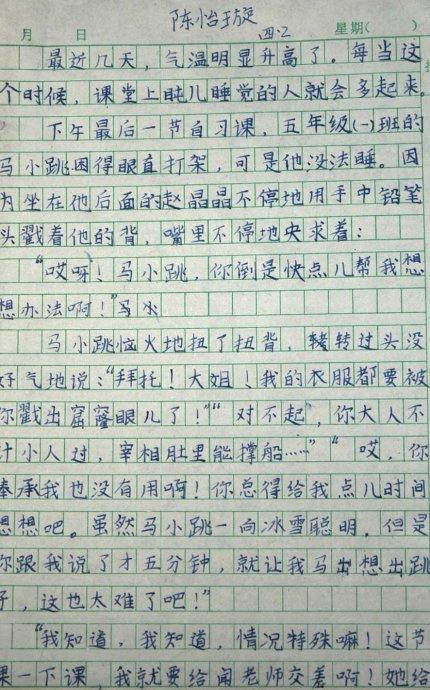 陈怡璇
月 日 四.2 星期( )
最近几天，气温明显升高了。每当这
个时候，课堂上盹儿睡觉的人就会多起来。
下午最后一节自习课，五年级(一)班的
马小跳困得眼直打架，可是他没法睡。因
为坐在他后面的赵晶晶不停地用手中铅笔
头戳着他的背，嘴里不停地央求着：
“哎呀！马小跳，你倒是快点儿帮我想
想办法啊！”马小
马小跳恼火地扭了扭背，转过头没
好气地说：“拜托！大姐！我的衣服都要被
你戳出窟窿眼儿了！”“对不起，你大人不
计小人过，宰相肚里能撑船……”“哎，你
奉承我也没有用啊！你总得给我点儿时间
想想吧。虽然马小跳一向冰雪聪明，但是
你跟我说了才五分钟，就让我马出想出跳
子，这也太难了吧！”
“我知道，我知道，情况特殊嘛！这节
课一下课，我就要给闻老师交差啊！她给